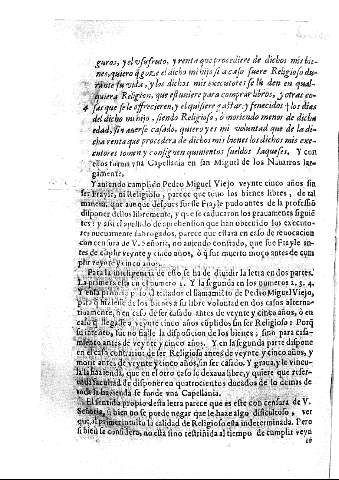 guros, y el vsufruto, y renta que procediere de dichos mis bie-
nes, quiero q̃ goze el dicho mi hijo si a caso fuere Religioso du-
rante su vida, y los dichos mis executores se le den en qual-
quiera Religion, que estuuiere para comprar libros, y otras co-
sas que se le offrecieren, y el quisiere gastar, y fenecidos los dias
del dicho mi hijo, siendo Religioso, ò moriendo menor de dicha
edad, sin auerse casado, quiero y es mi voluntad que de la di-
cha renta que procedera de dichos mis bienes los dichos mis exe-
cutores tomen y consignen quinientos sueldos Iaqueses. Y con
ellos funden vna Capellania en san Miguel de los Nauarros lar-
gamente.
Y auiendo cumplido Pedro Miguel Viejo veynte cinco años sin
ser Frayle, ni Religioso, parece que tuuo los bienes libres, de tal
manera, que aunque despues fuesse Frayle pudo antes de la professiõ
disponer dellos libremente, y que se caducaron los grauamenes siguiē
tes: y assi el apellido de aprehension que han obtenido los executo-
res nueuamente subrogados, parece que esta en caso de reuocacion
con censura de V. Señoria, no auiendo constado, que fue Frayle an-
tes de cũplir veynte y cinco años, ò q̃ di que murio moço antes de cum
plir veynte y cinco años.
Para la inteligencia de esto se ha de diuidir la letra en dos partes.
La primera esta en el numero 1. Y la segunda en los numeros 2. 3. 4.
Y en la primera
para q̃ hiziesse de los bienes a su libre voluntad en dos casos alterna-
tiuamente, ò en caso de ser casado antes de veynte y cinco años, ò en
caso q̃ llegasse a veynte y cinco años cũplidos sin ser Religioso: Porq̃
su intento, fue no darle la disposicion de los bienes; sino para casa-
miento antes de veynte y cinco años. Y en la segunda parte dispone
en el caso contrario: de ser Religioso antes de veynte y cinco años, y
morir antes de veynte y cinco años, sin ser casado. Y graua, y le vincu-
la la hazienda, que en el otro caso le dexaua libre; y quiere que reser-
uada facultad de disponer en quatrocientos ducados de lo demas de
toda la hazienda se funde vna Capellania.
El sentido propio desta letra parece que es este con censura de V.
Señoria, si bien no se puede negar que le haze algo dificultoso, ver
que al primer intuitu la calidad de Religioso esta indeterminada. Pero
si bien se considera, no esta sino restrinida al tiempo de cumplir veyn
te